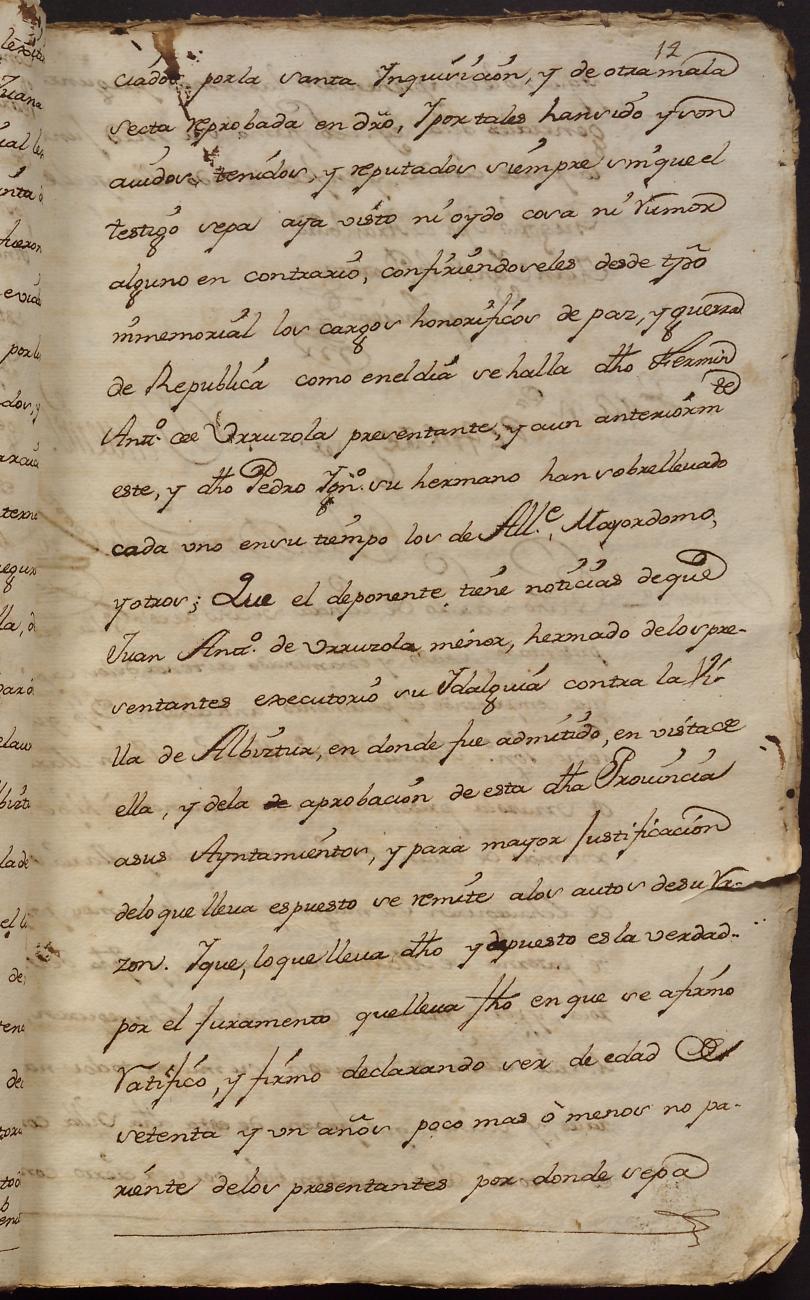 12
ciados por la santa Inquisicion, y de otra mala
secta reprobada en dro, Y por tales han sido y son
auidos, tenidos, y reputados siempre sin que el
testigo sepa aya visto ni oydo cosa ni Rumor
alguno en contrario, confiriendoseles desde tpo
inmemorial los cargos honorificos de paz, y guerra
de Republica como en el dia se halla dho Fermin
Anto. de Urruzola presentante, y aun anteriorm.te
este, y dho Pedro Igno. su hermano han sobrelleuado
cada uno en su tiempo los de Alle., Mayordomo,
y otros; Que el deponente tiene noticias de que
Juan Anto. de Urruzola menor, hermado delos pre-
sentantes executorio su Idalguia contra la Vi-
lla de Albiztur, en donde fue admitido, en vista de
ella, y dela de aprobacion de esta dha Prouincia
asus Ayntamientos, y para mayor Justificacion
delo que lleua espuesto se remite alos autos desu Ra-
zon. Y que, lo que lleua dho y depuesto es la verdad
por el Juramento que lleua fho en que se afirmo
Ratifico, y firmo declarando ser de edad De
setenta y un años poco mas ò menos no pa-
riente delos presentantes por donde sepa